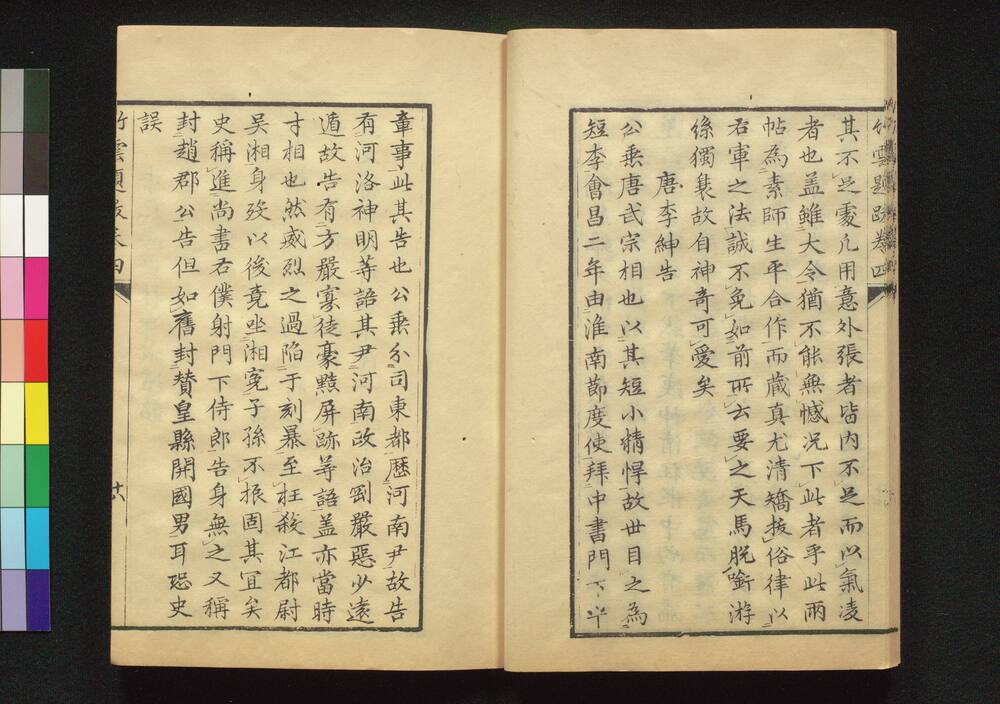 竹雲題跋卷四
其不足處凡用意外張者皆內不足而以氣凌
者也盖雖大令猶不能無憾况下此者乎此兩
帖為素師生平合作而藏真尤清矯拔俗律以
右軍之法誠不免如前所云要之天馬脱銜游
絲獨裊故自神奇可愛矣
唐李紳告
公乘唐武宗相也以其短小精悍故世目之為
短李會昌二年由淮南節度使拜中書門下平
章事此其告也公乘分司東都歷河南尹故告
有河洛神明等語其尹河南政治剛嚴惡少遠
遁故告有方嚴寡徒豪黠屏跡等語盖亦當時
才相也然威烈之過陷于刻暴至枉殺江都尉
吳湘身殁以後竟坐湘寃子孫不振固其宜矣
史稱進尚書右僕射門下侍郎告身無之又稱
封趙郡公告但如舊封贊皇縣開國男耳恐史
誤
竹雲題跋卷四
廿